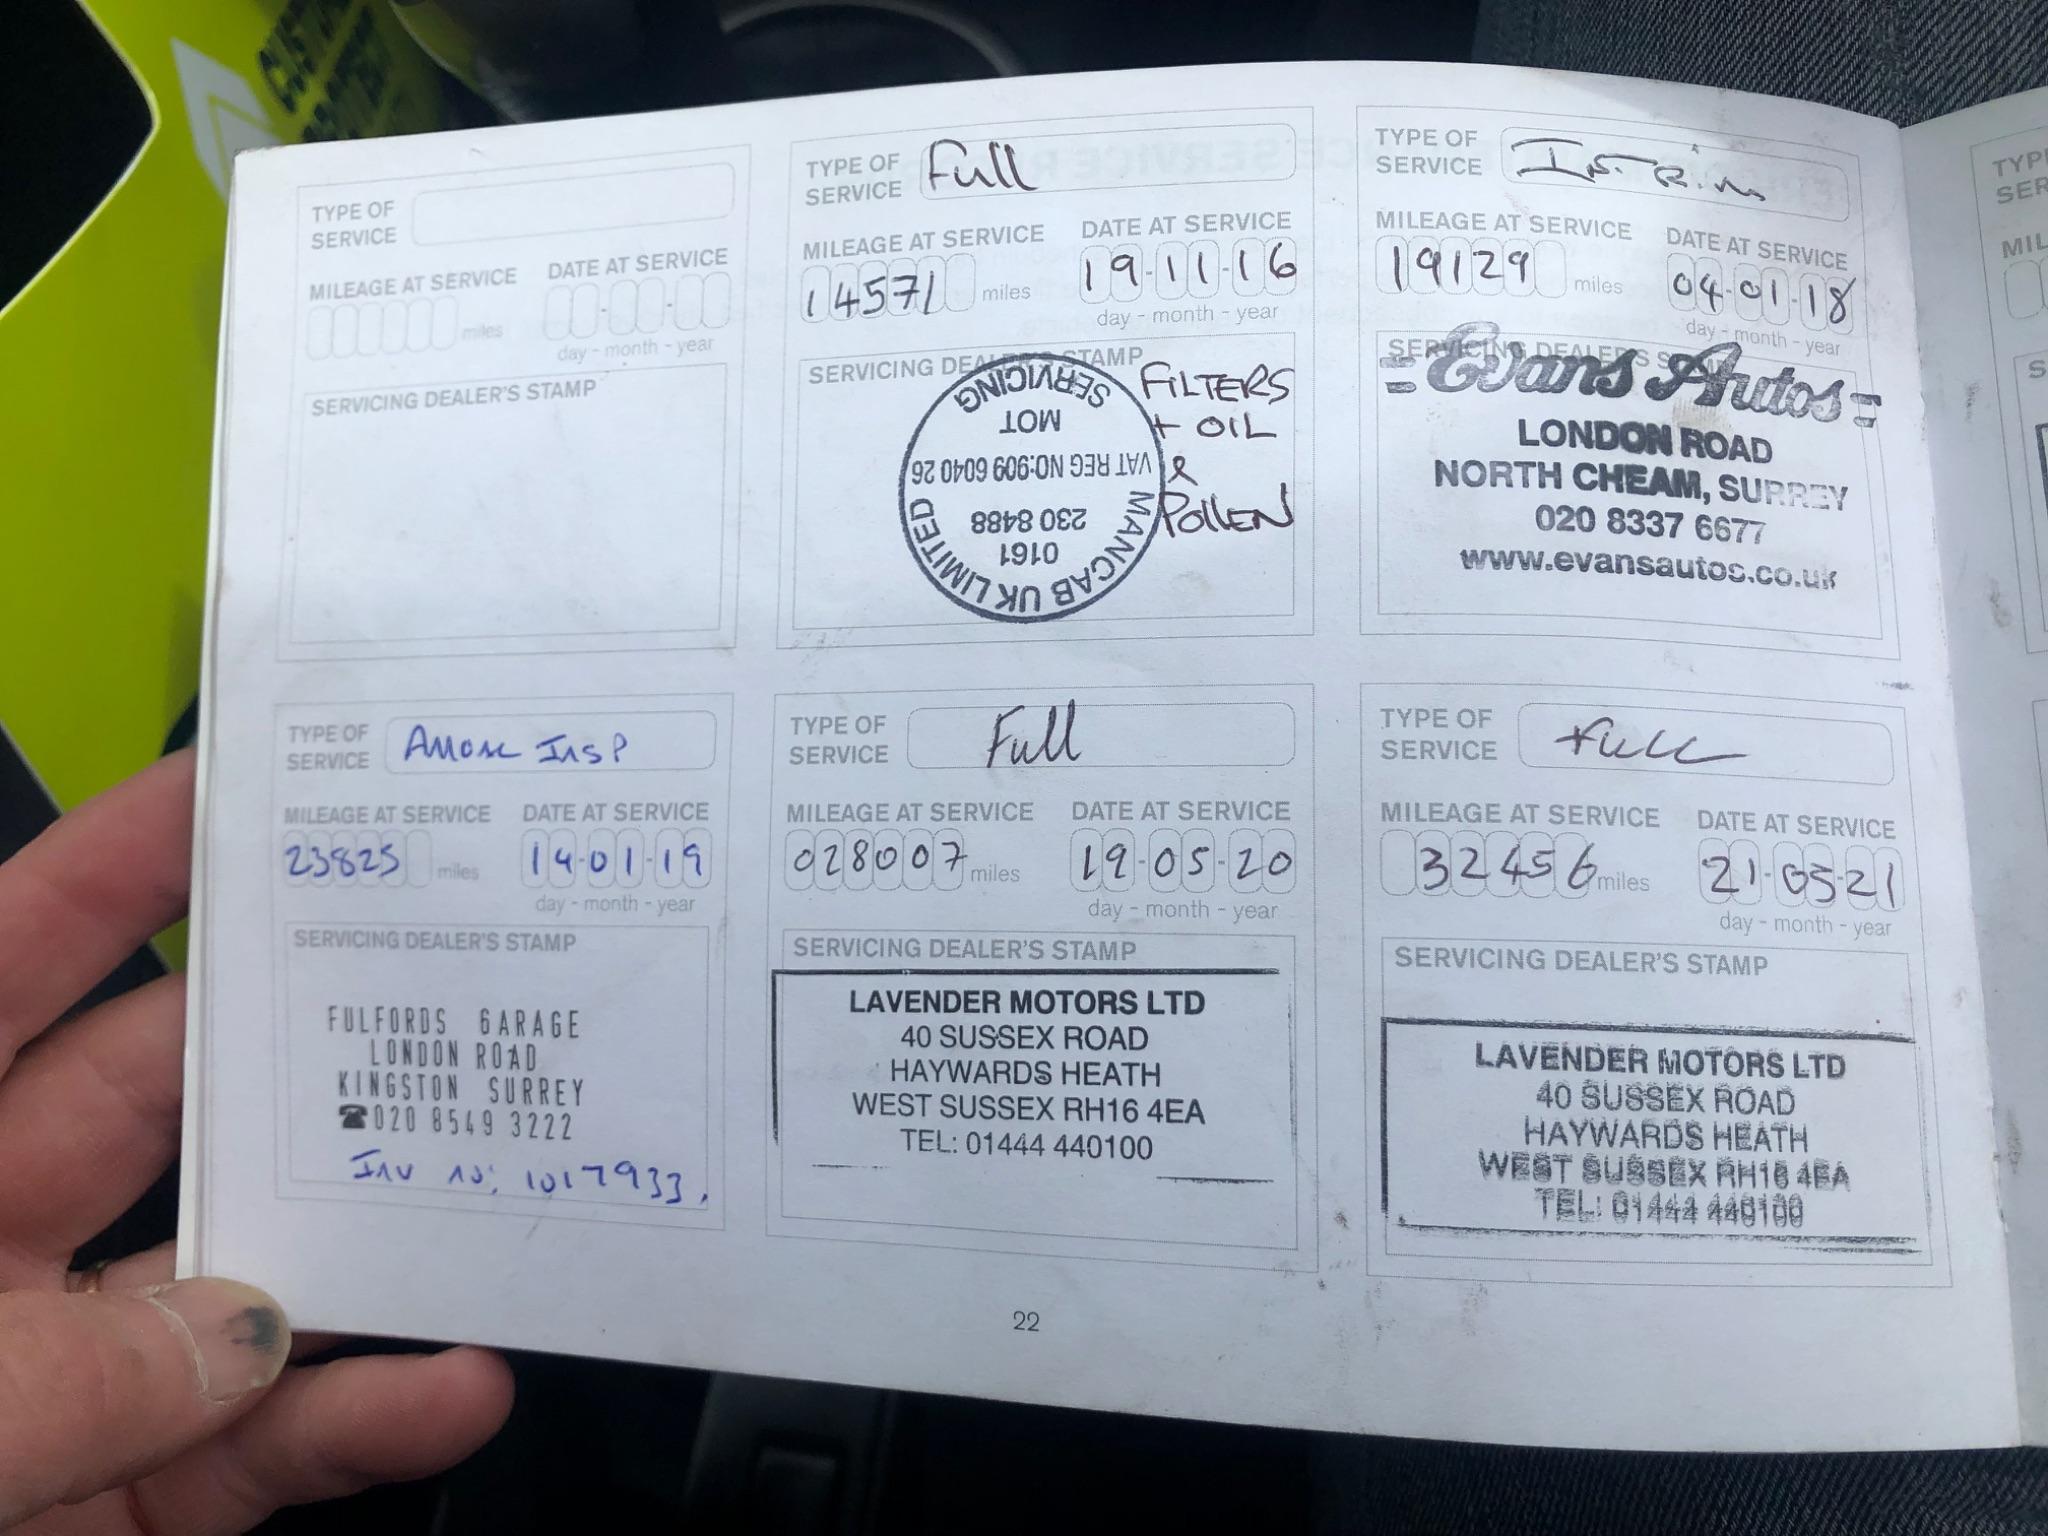 TYPE OF
SERVICE
MILEAGE AT SERVICE
DATE AT SERVICE
miles
day - month - year
SERVICING DEALER'S STAMP
TYPE OF
SERVICE
Full
MILEAGE AT SERVICE
DATE AT SERVICE
14571 miles
19-11-16
day - month - year
SERVICING DEALER'S STAMP
SERVICING
MOT
VAT REG NO:909 6040 26
230 8488
0161
MANCAB UK LIMITED
FILTERS
+ OIL
&
POLLEN
TYPE OF
SERVICE
MILEAGE AT SERVICE
DATE AT SERVICE
19129 miles
04-01-18
day - month - year
SERVICING DEALER'S STAMP
Evans Autos
LONDON ROAD
NORTH CHEAM, SURREY
020 8337 6677
www.evansautos.co.uk
TYPE OF
SERVICE
INSP
MILEAGE AT SERVICE
DATE AT SERVICE
23825 miles
14-01-19
day - month - year
SERVICING DEALER'S STAMP
FULFORDS GARAGE
LONDON ROAD
KINGSTON SURREY
☎020 8549 3222
Inv no: 1017933.
TYPE OF
SERVICE
Full
MILEAGE AT SERVICE
DATE AT SERVICE
028007 miles
19-05-20
day - month - year
SERVICING DEALER'S STAMP
LAVENDER MOTORS LTD
40 SUSSEX ROAD
HAYWARDS HEATH
WEST SUSSEX RH16 4EA
TEL: 01444 440100
TYPE OF
SERVICE
Full
MILEAGE AT SERVICE
DATE AT SERVICE
32456 miles
21-05-21
day - month - year
SERVICING DEALER'S STAMP
LAVENDER MOTORS LTD
40 SUSSEX ROAD
HAYWARDS HEATH
WEST SUSSEX RH16 4EA
TEL: 01444 440100
22